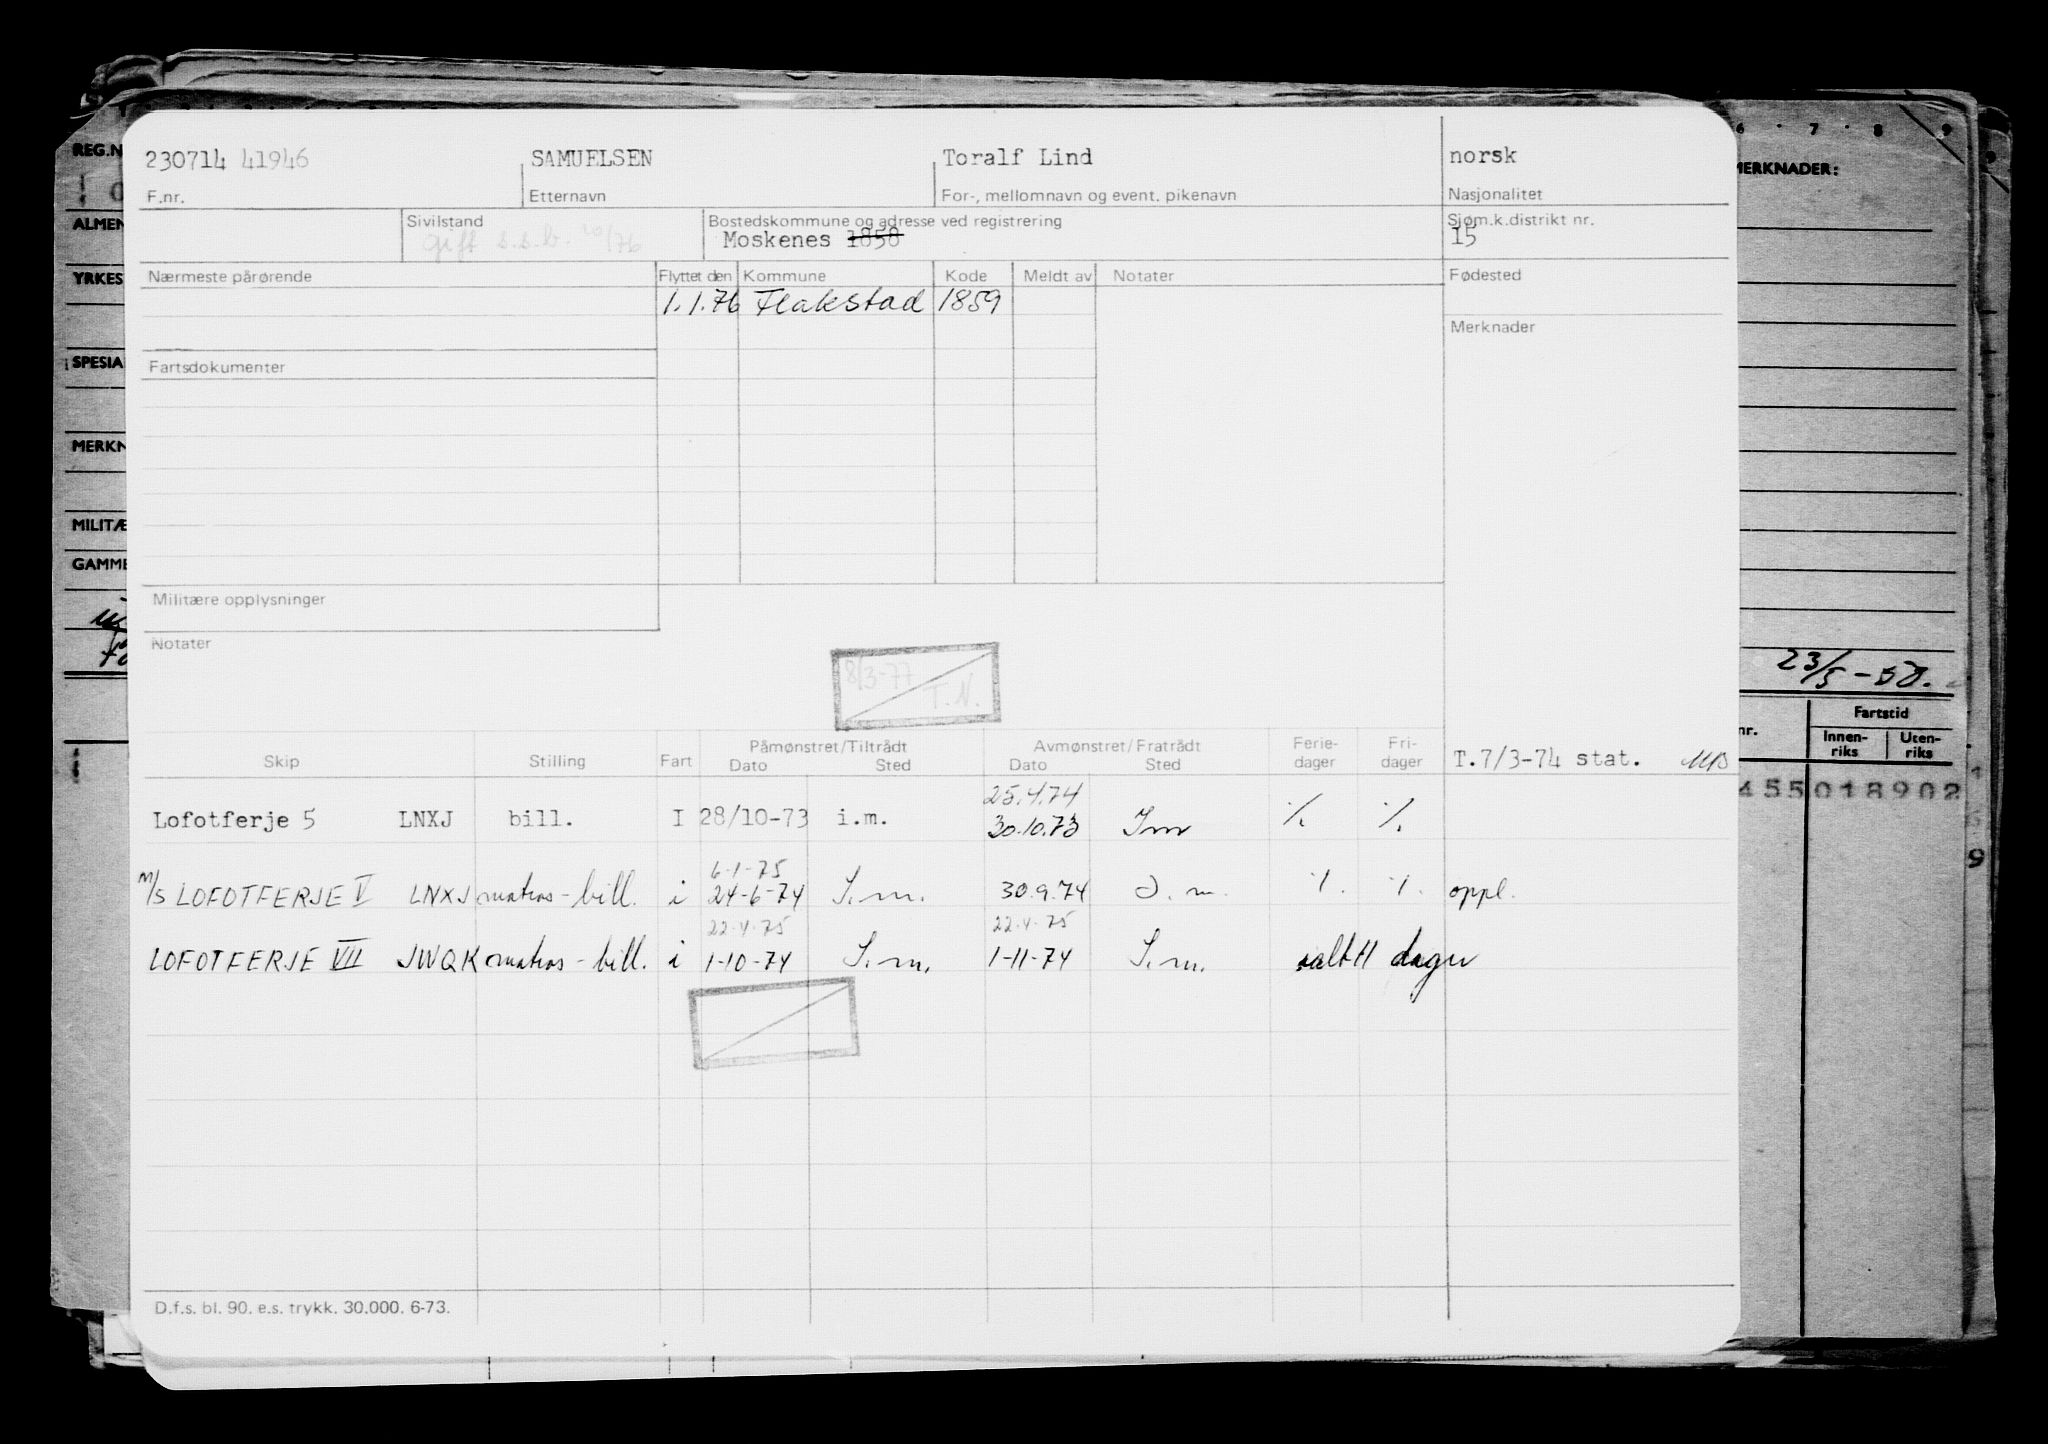 230714 41946 SAMUELSEN Toralf Lind norsk
F.nr. Etternavn For-, mellomnavn og event. pikenavn Nasjonalitet
Sivilstand Bostedskommune og adresse ved registrering Sjøm.k.distrikt nr.
gift s.s.b. 10/76 Moskenes 1858 15
Nærmeste pårørende Flyttet den Kommune Kode Meldt av Notater Fødested
1.1.76 Flakstad 1859
Merknader
Fartsdokumenter
Militære opplysninger
Notater
8/3-77
T.N.
Skip Stilling Fart Påmønstret/Tiltrådt Avmønstret/Fratrådt Ferie- Fri-
Dato Sted Dato Sted dager dager T.7/3-74 stat.
25.4.74
Lofotferje 5 LNXJ bill. I 28/10-73 i.m. 30.10.73 I m % %
6-1-75
M/S LOFOTFERJE V LNXJ matros-bill. i 24-6-74 I.m. 30.9.74 I.m. % % oppl.
22.4.75 22.4.75
LOFOTFERJE VII JWQK matros-bill. i 1-10-74 I.m. 1-11-74 I.m. dager
D.f.s. bl. 90. e.s. trykk. 30.000. 6-73.
REG.N
ALMEN
YRKES
SPESIA
MERKN
MILITÆ
GAMME
6 7 8 9
MERKNADER:
23/5-50.
nr. Fartstid
Innen-riks Uten-riks
455018902
9